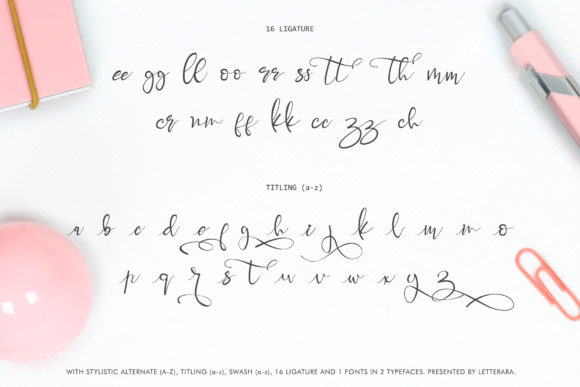 16 LIGATURE
ee gg ll oo rr ss tt th mm
nn ff kk cc zz ch
TITLING (a-z)
a b c d e f g h i j k l m n o
p q r s t u v w x y z
WITH STYLISTIC ALTERNATE (A-Z), TITLING (a-z), SWASH (a-z), 16 LIGATURE AND 1 FONTS IN 2 TYPEFACES. PRESENTED BY LETTERARA.